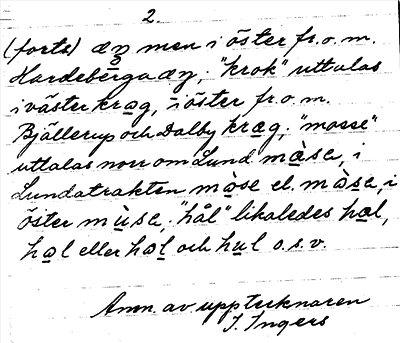 2.
(forts) æȝ men i öster fr. o. m.
Hardeberga æȝ; "krok" uttalas
i väster krɑg, i öster fr. o. m.
Bjällerup och Dalby kræg; "mosse"
uttalas norr om Lund mæ̀sa, i
Lundatrakten mòse el. mɑ̀sa, i
öster mùsa; "hål" likaledes hæl,
hɑl eller hol och hul o.s.v.
Anm. av upptecknaren
I. Ingers